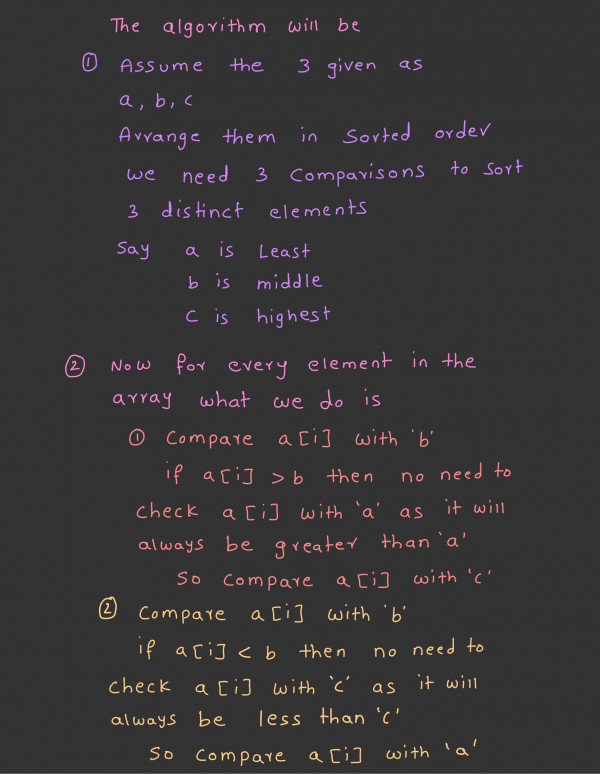 The algorithm will be
① Assume the 3 given as
a, b, c
Arrange them in Sorted order
we need 3 Comparisons to sort
3 distinct elements
Say a is Least
b is middle
c is highest
② Now for every element in the
array what we do is
① Compare a[i] with 'b'
if a[i] > b then no need to
check a[i] with 'a' as it will
always be greater than 'a'
So Compare a[i] with 'c'
② Compare a[i] with 'b'
if a[i] < b then no need to
check a[i] with 'c' as it will
always be less than 'c'
So Compare a[i] with 'a'